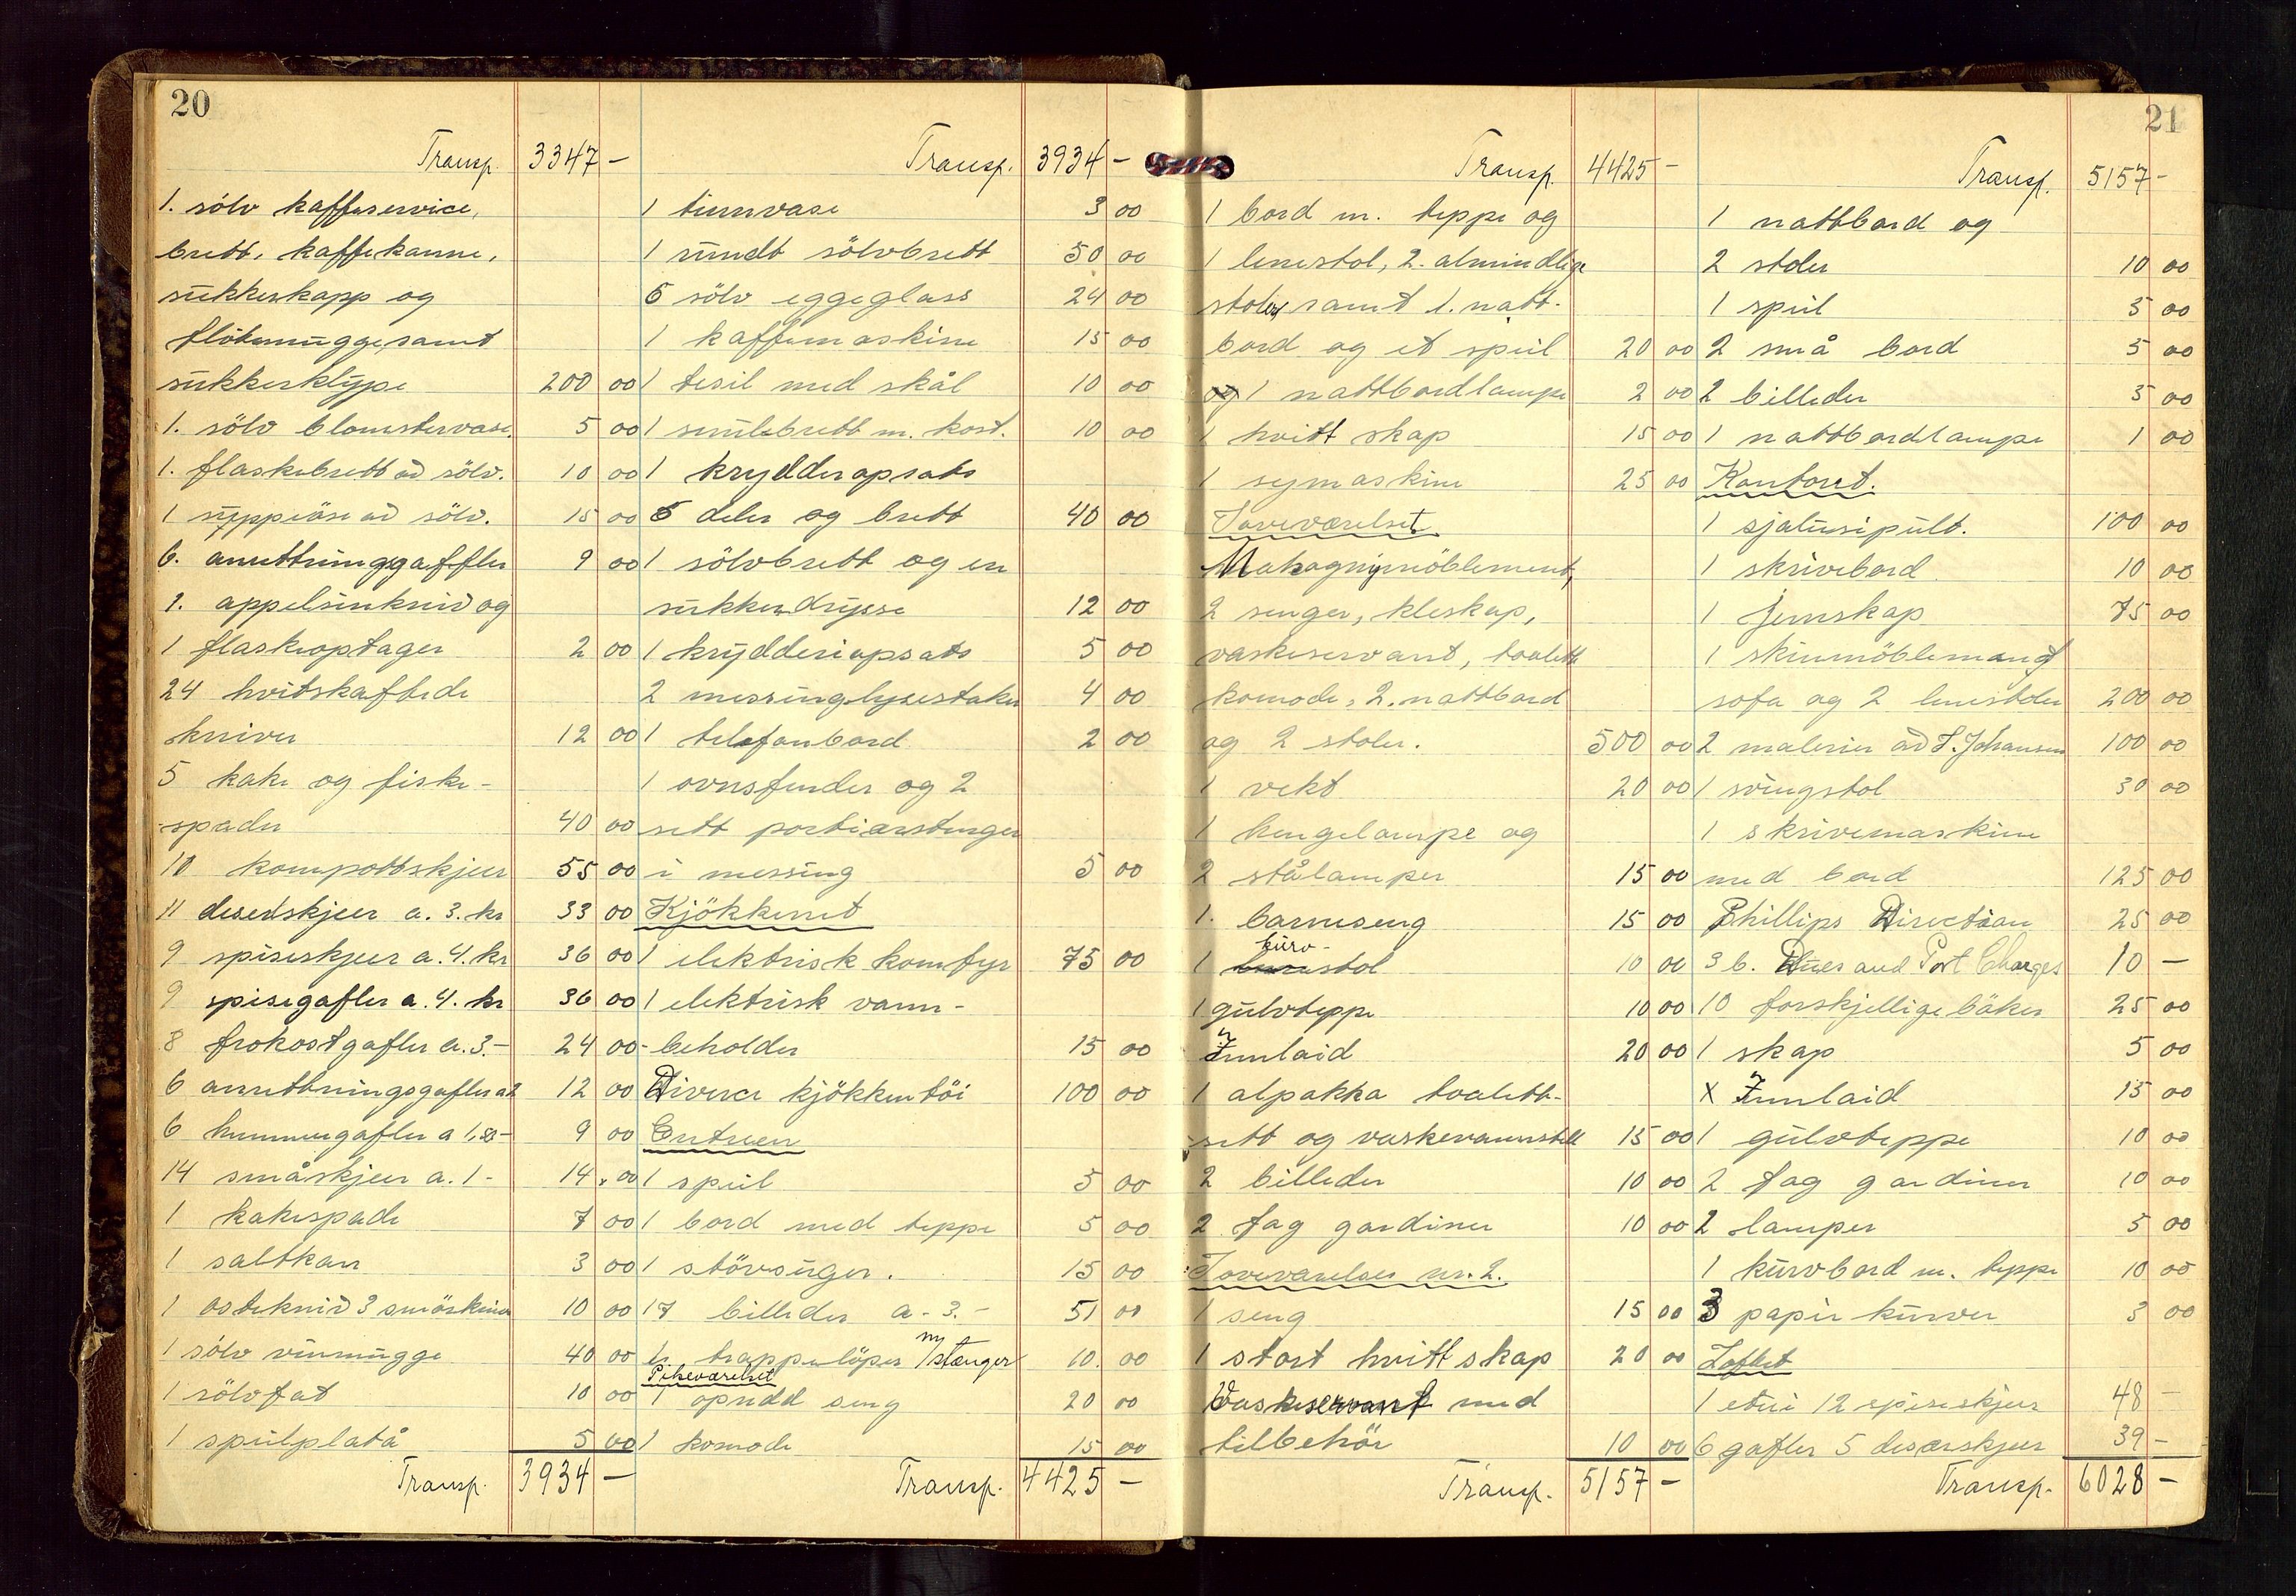 20
Transp. 3347 -
1. sölv kaffeservice,
brett, kaffekanne,
sukkerskapp og
flötemugge, samt
sukkerklype 200 00
1. sölv blomstervase. 5 00
1. flaskebrett av sölv. 10 00
1 suppeöse av sölv. 15 00
6. anrettningsgaffler 9 00
1. appelsinkniv og
1 flaskeoptager 2 00
24 hvitskaftede
kniver 12 00
5 kake og fiske-
-spader 40 00
10 kompottskjeer 55 00
11 desertskjeer a. 3. kr 33 00
9 spiseskjeer a. 4. kr 36 00
9 spisegafler a. 4. kr 36 00
8 frokostgafler a. 3.- 24 00
6 anrettningsgafler a 2 12 00
6 hummergafler a 1,50- 9 00
14 småskjeer a. 1- 14.00
1 kakespade 7 00
1 saltkar 3 00
1 ostekniv 3 smörkniver 10 00
1 sölv vinmugge 40 00
1 sölvfat 10 00
1 speilplatå 5 00
Transp. 3934 -
Transp. 3934 -
1 tinnvase 3 00
1 rundt sölvbrett 50 00
6 sölv eggeglass 24 00
1 kaffemaskine 15 00
1 tesil med skål 10 00
1 smulebrett m. kost. 10 00
1 krydderopsats
6 deler og brett 40 00
1 sölvbrett og en
sukkerdrysse 12 00
1 krydderiopsats 5 00
2 messinglysestaker 4 00
1 telefonbord 2 00
1 ovnsfender og 2
sett portierstenger
i messing 5 00
Kjökkenet
1 elektrisk komfyr 75 00
1 elektrisk vann-
-beholder 15 00
Diverse kjökkentöi 100 00
Entreen
1 speil 5 00
1 bord med teppe 5 00
1 stövsuger. 15 00
17 billeder a- 3.- 51 00
1 trappelöper m/stænger 10.00
Pikeværelset
1 opredd seng 20 00
1 komode 15 00
Transp. 4425 -
21
Transp. 4425 -
1 bord m. teppe og
1 lenestol, 2. almindlige
stoler samt 1. natt-
bord og et speil 20 00
og 1 nattbordlampe 2 00
1 hvitt skap 15 00
1 symaskine 25 00
Soveværelset
Mahognymöblement,
2 senger, kleskap,
vaskeservant, toalett
komode, 2. nattbord
og 2 stoler. 500 00
1 vekt 20 00
1 hengelampe og
2 stålamper 15 00
1. barneseng 15 00
kurv-
1 stol 10 00
1 gulvteppe 10 00
Innlaid 20 00
1 alpakka toalett-
-sett og vaskevannstell 15 00
2 billeder 10 00
2 fag gardiner 10 00
Soveværelset nr. 2.
1 seng 15 00
1 stort hvitt skap 20 00
Vaskeservant med
tilbehör 10 00
Transp. 5157 -
Transp. 5157 -
1 nattbord og
2 stoler 10 00
1 speil 5 00
2 små bord 5 00
2 billeder 5 00
1 nattbordlampe 1 00
Kontoret.
1 sjalusipult. 100 00
1 skrivebord 10 00
1 jernskap 75 00
1 skinnmöblemang
sofa og 2 lenestoler 200 00
2 malerier av S. Johansen 100 00
1 svingstol 30 00
1 skrivemaskine
med bord 125 00
Phillips Direction 25 00
3 b. Dues and Port Charges 10 -
10 forskjellige böker 25 00
1 skap 5 00
x Innlaid 15 00
1 gulvteppe 10 00
2 fag gardiner 10 00
2 lamper 5 00
1 kurvbord m. teppe 10 00
3 papir kurver 3 00
Loftet
1 etui 12 spiseskjeer 48 -
6 gafler 5 desærskjeer 39 -
Transp. 6028 -